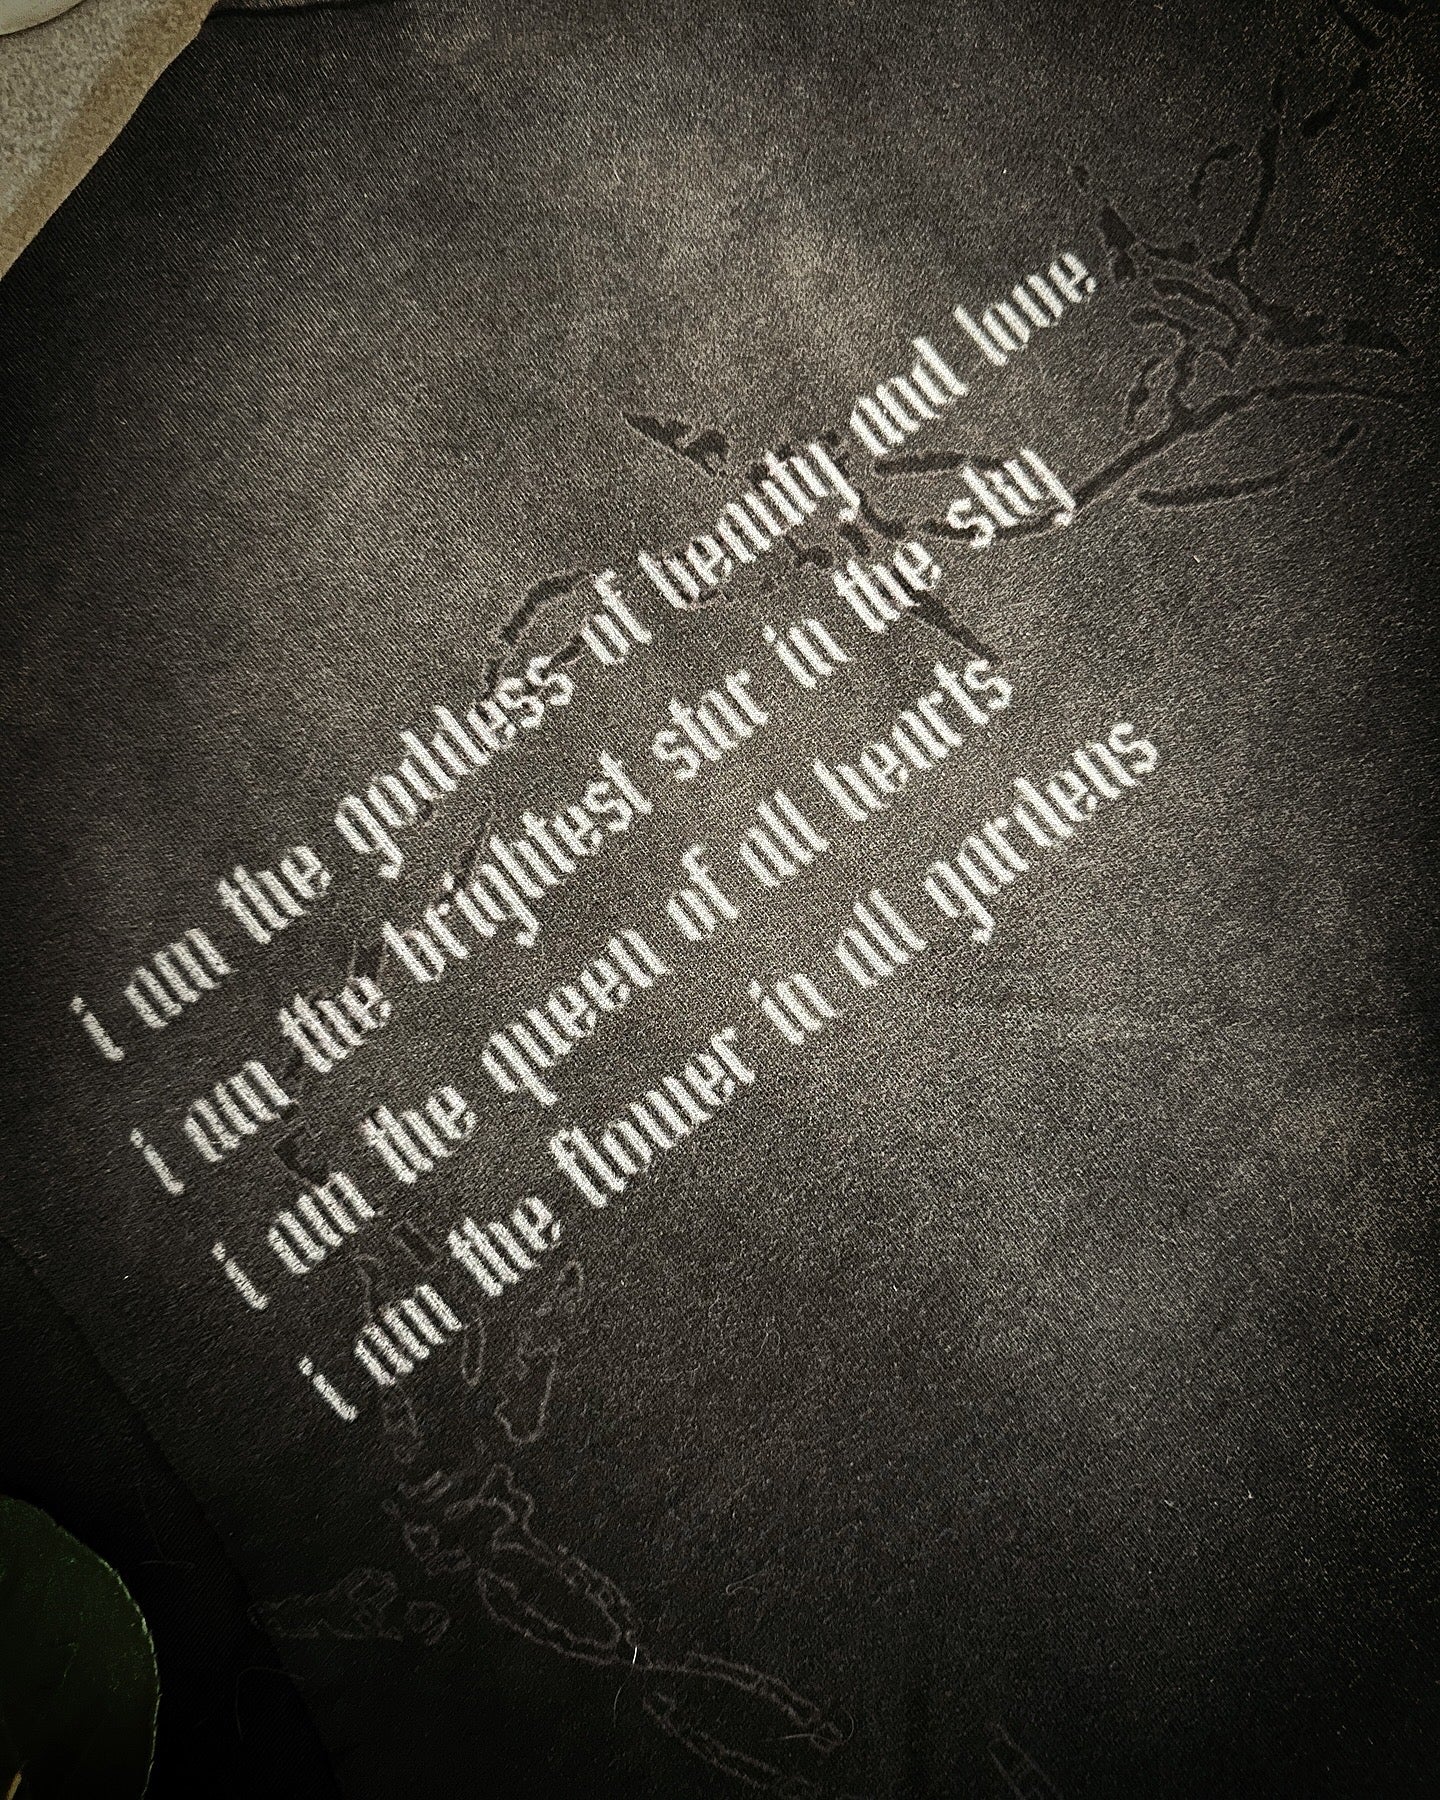 i am the goddess of beauty and love
i am the brightest star in the sky
i am the queen of all hearts
i am the flower in all gardens